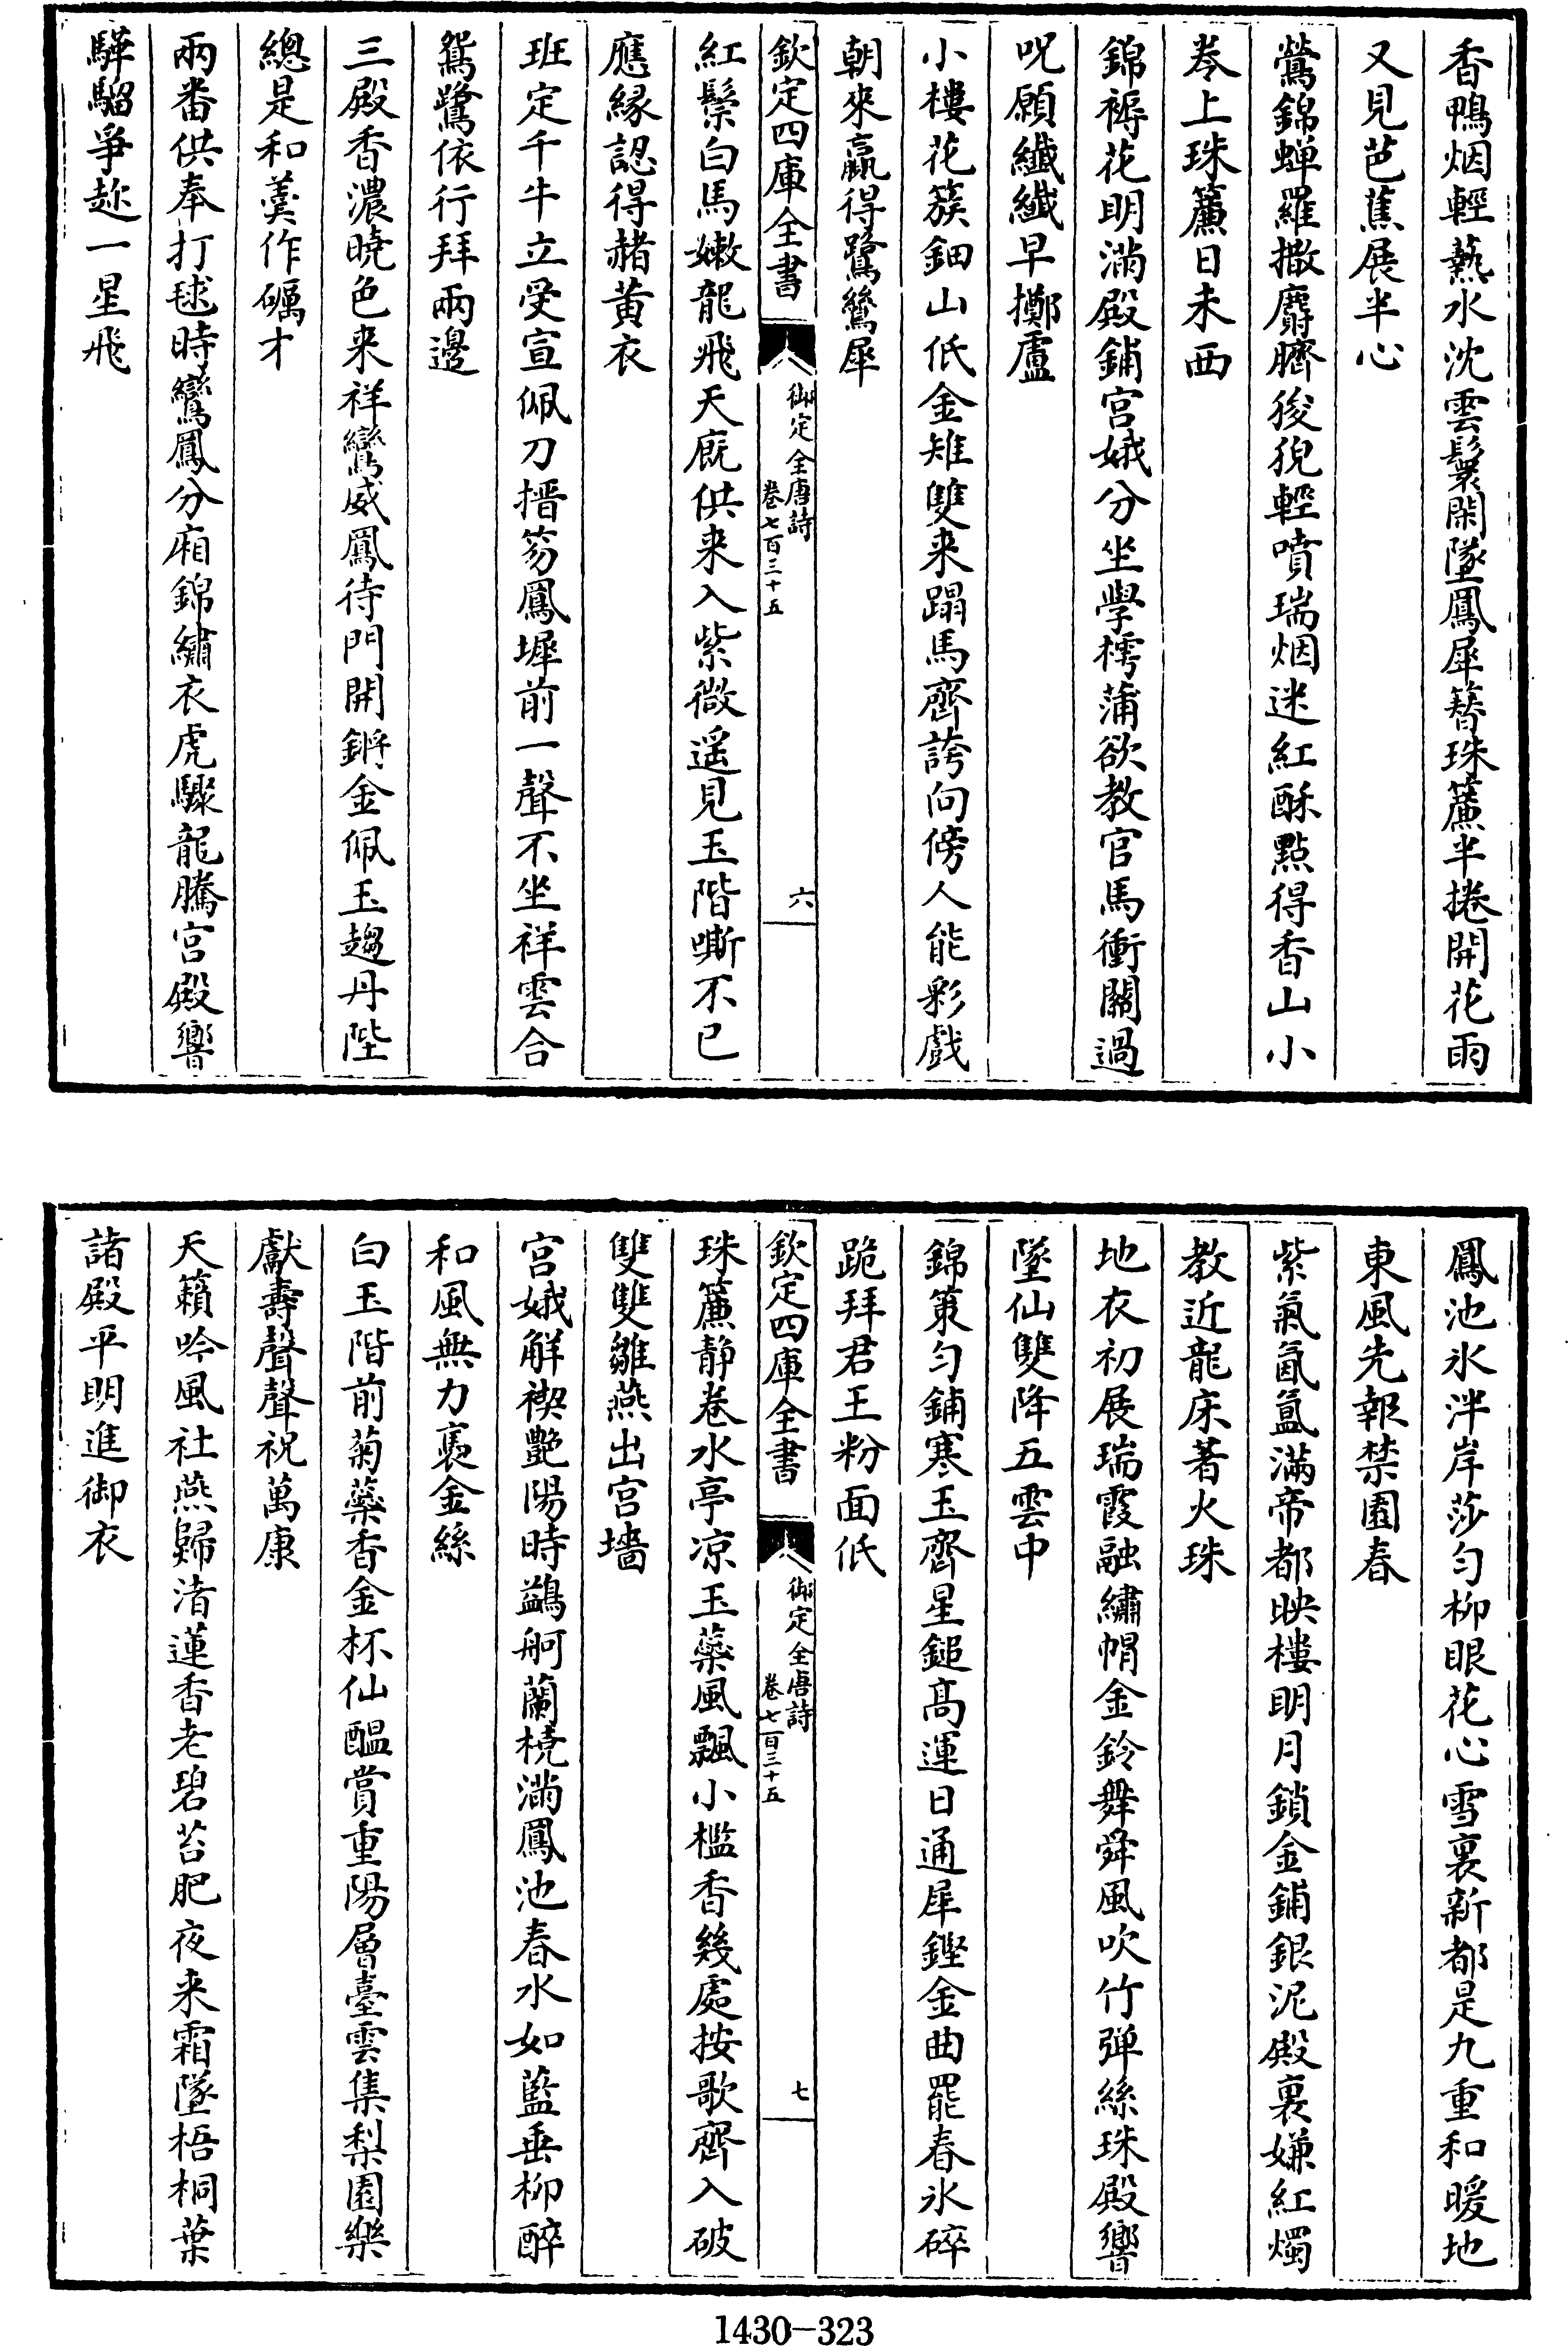 香鴨烟輕爇水沈雲鬟閑墜鳳犀簪珠簾半捲開花雨
又見芭蕉展半心
鶯錦蟬羅撒麝臍狻猊輕噴瑞烟迷紅酥㸃得香山小
卷上珠簾日未西
錦褥花明滿殿鋪宫娥分坐學樗蒲欲教官馬衝關過
呪願纖纖早擲盧
小樓花簇鈿山低金雉雙來蹋馬齊誇向傍人能彩戲
朝來贏得鷺鷥犀
欽定四庫全書
御定全唐詩
卷七百三十五
六
紅鬃白馬嫩龍飛天廐供来入紫微遥見玉階嘶不已
應緣認得赭黄衣
班定千牛立受宣佩刀搢笏鳳墀前一聲不坐祥雲合
鴛鷺依行拜兩邊
三殿香濃曉色来祥鸞威鳳待門開鏘金佩玉趨丹陛
總是和羹作礪才
兩番供奉打毬時鸞鳳分廂錦繡衣虎驟龍騰宫殿響
驊騮爭趂一星飛
鳳池氷泮岸莎勻柳眼花心雪裏新都是九重和暖地
東風先報禁園春
紫氣氤氲滿帝都映樓明月鎖金鋪銀泥殿裏嫌紅燭
教近龍床著火珠
地衣初展瑞霞融繡帽金鈴舞舜風吹竹彈絲珠殿響
墜仙雙降五雲中
錦策勻鋪寒玉齊星鎚髙運日通犀鏗金曲罷春氷碎
跪拜君王粉面低
欽定四庫全書
御定全唐詩
卷七百三十五
七
珠簾静卷水亭凉玉蘂風飄小檻香幾處按歌齊入破
雙雙雛燕出宫墻
宫娥解禊艶陽時鷁舸蘭橈滿鳳池春水如藍垂柳醉
和風無力裊金絲
白玉階前菊蘂香金杯仙醖賞重陽層臺雲集梨園樂
獻壽聲聲祝萬康
天籟吟風社燕歸渚蓮香老碧苔肥夜来霜墜梧桐葉
諸殿平明進御衣
1430-323